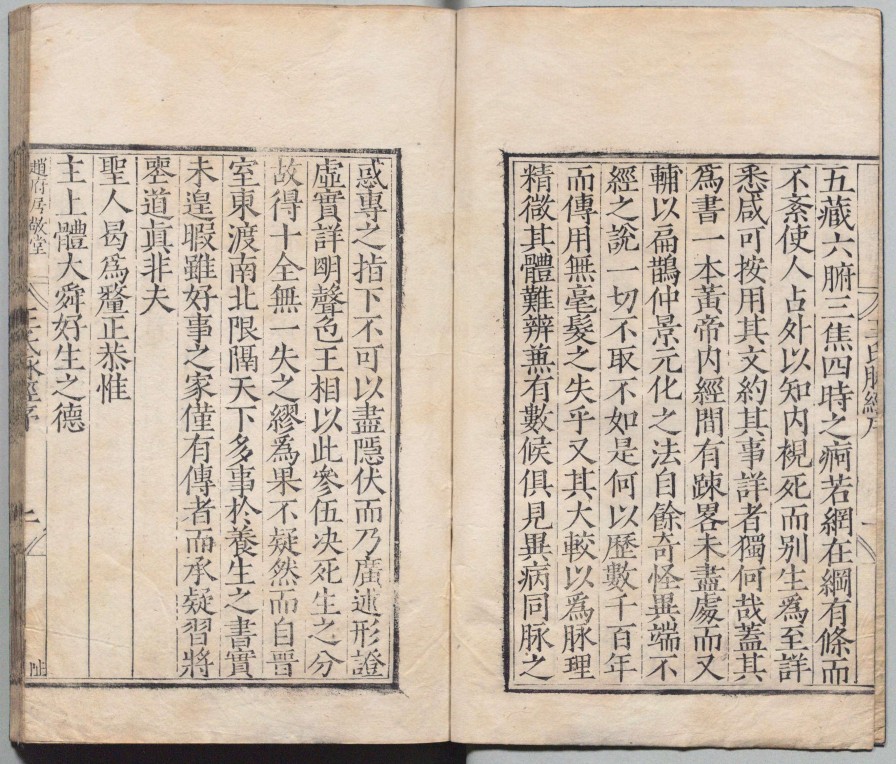 王氏脉經序
五藏六腑三焦四時之痾若網在綱有條而
不紊使人占外以知内視死而别生爲至詳
悉咸可按用其文約其事詳者獨何哉蓋其
爲書一本黃帝内經間有踈畧未盡處而又
輔以扁鵲仲景元化之法自餘奇怪異端不
經之說一切不取不如是何以歷數千百年
而傳用無毫髮之失乎又其大較以爲脉理
精微其體難辨兼有數候俱見異病同脉之
惑專之指下不可以盡隱伏而乃廣述形證
虛實詳明聲色王相以此參伍決死生之分
故得十全無一失之繆爲果不疑然而自晋
室東渡南北限隔天下多事於養生之書實
未遑暇雖好事之家僅有傳者而承疑習將
丕道眞非夫
聖人曷爲釐正恭惟
主上體大舜好生之德
趙府居敬堂
王氏脉經序
二